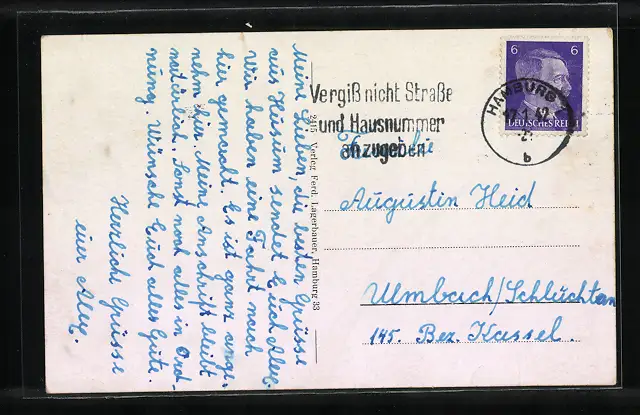 Meine Lieben, die besten Grüsse
aus Husum sendet Euch Alex.
Wir haben eine Fahrt nach
hier gemacht. Es ist ganz ange-
nehm hier. Meine Anschrift bleibt
natürlich. Sonst noch alles in Ord-
nung. Wünsche Euch alles Gute.
Herzliche Grüsse
euer Alex.
2415 Verlag Ferd. Lagerbauer, Hamburg 33
Vergiß nicht Straße
und Hausnummer
anzugeben
6 6
DEUTSCHES REICH
HAMBURG
b
Familie
Augustin Heid
Ulmbach/Schlüchtern
145. Bez. Kassel.